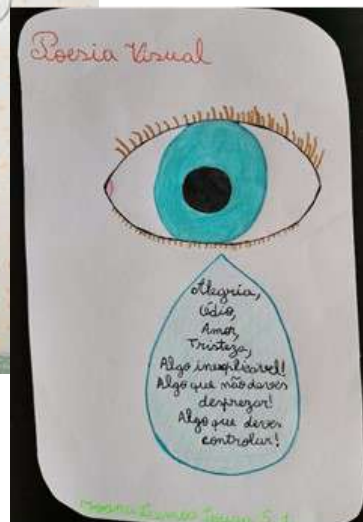 Poesia Visual
Alegria,
Ódio,
Amor,
Tristeza,
Algo inexplicável!
Algo que não deves
desprezar!
Algo que deves
controlar!